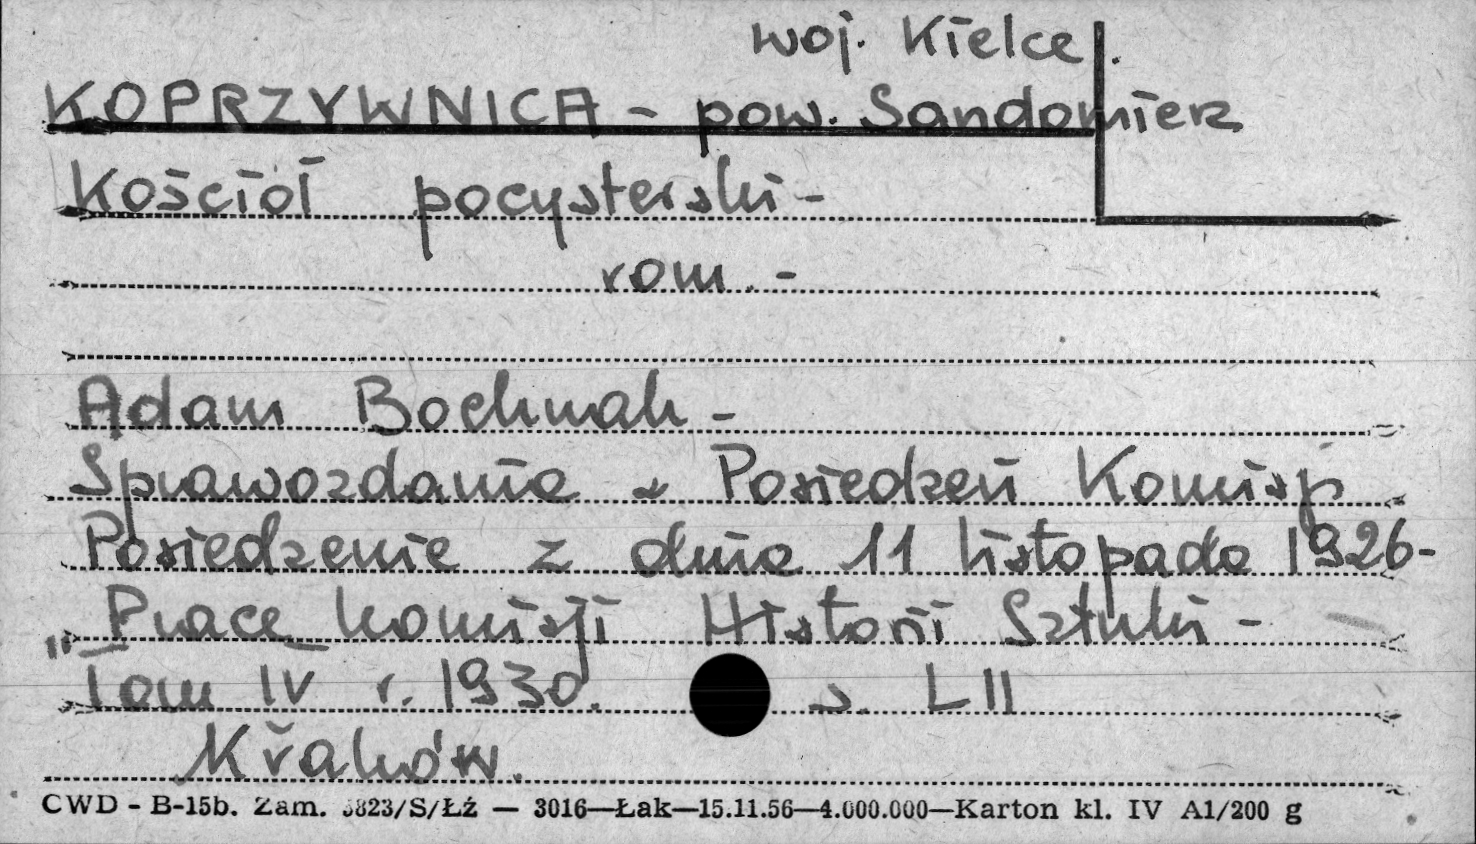 woj. Kielce.
KOPRZYWNICA - pow. Sandomierz
Kościół pocysterski -
rom. -
Adam Bochnak -
Sprawozdania z Posiedzeń Komisji
Posiedzenie z dnia 11 listopada 1926 -
"Prace Komisji Historii Sztuki -
Tom IV r. 1930. s. LII
Kraków.
CWD - B-15b. Zam. 3823/S/Łź — 3016—Łak—15.11.56—4.000.000—Karton kl. IV A1/200 g